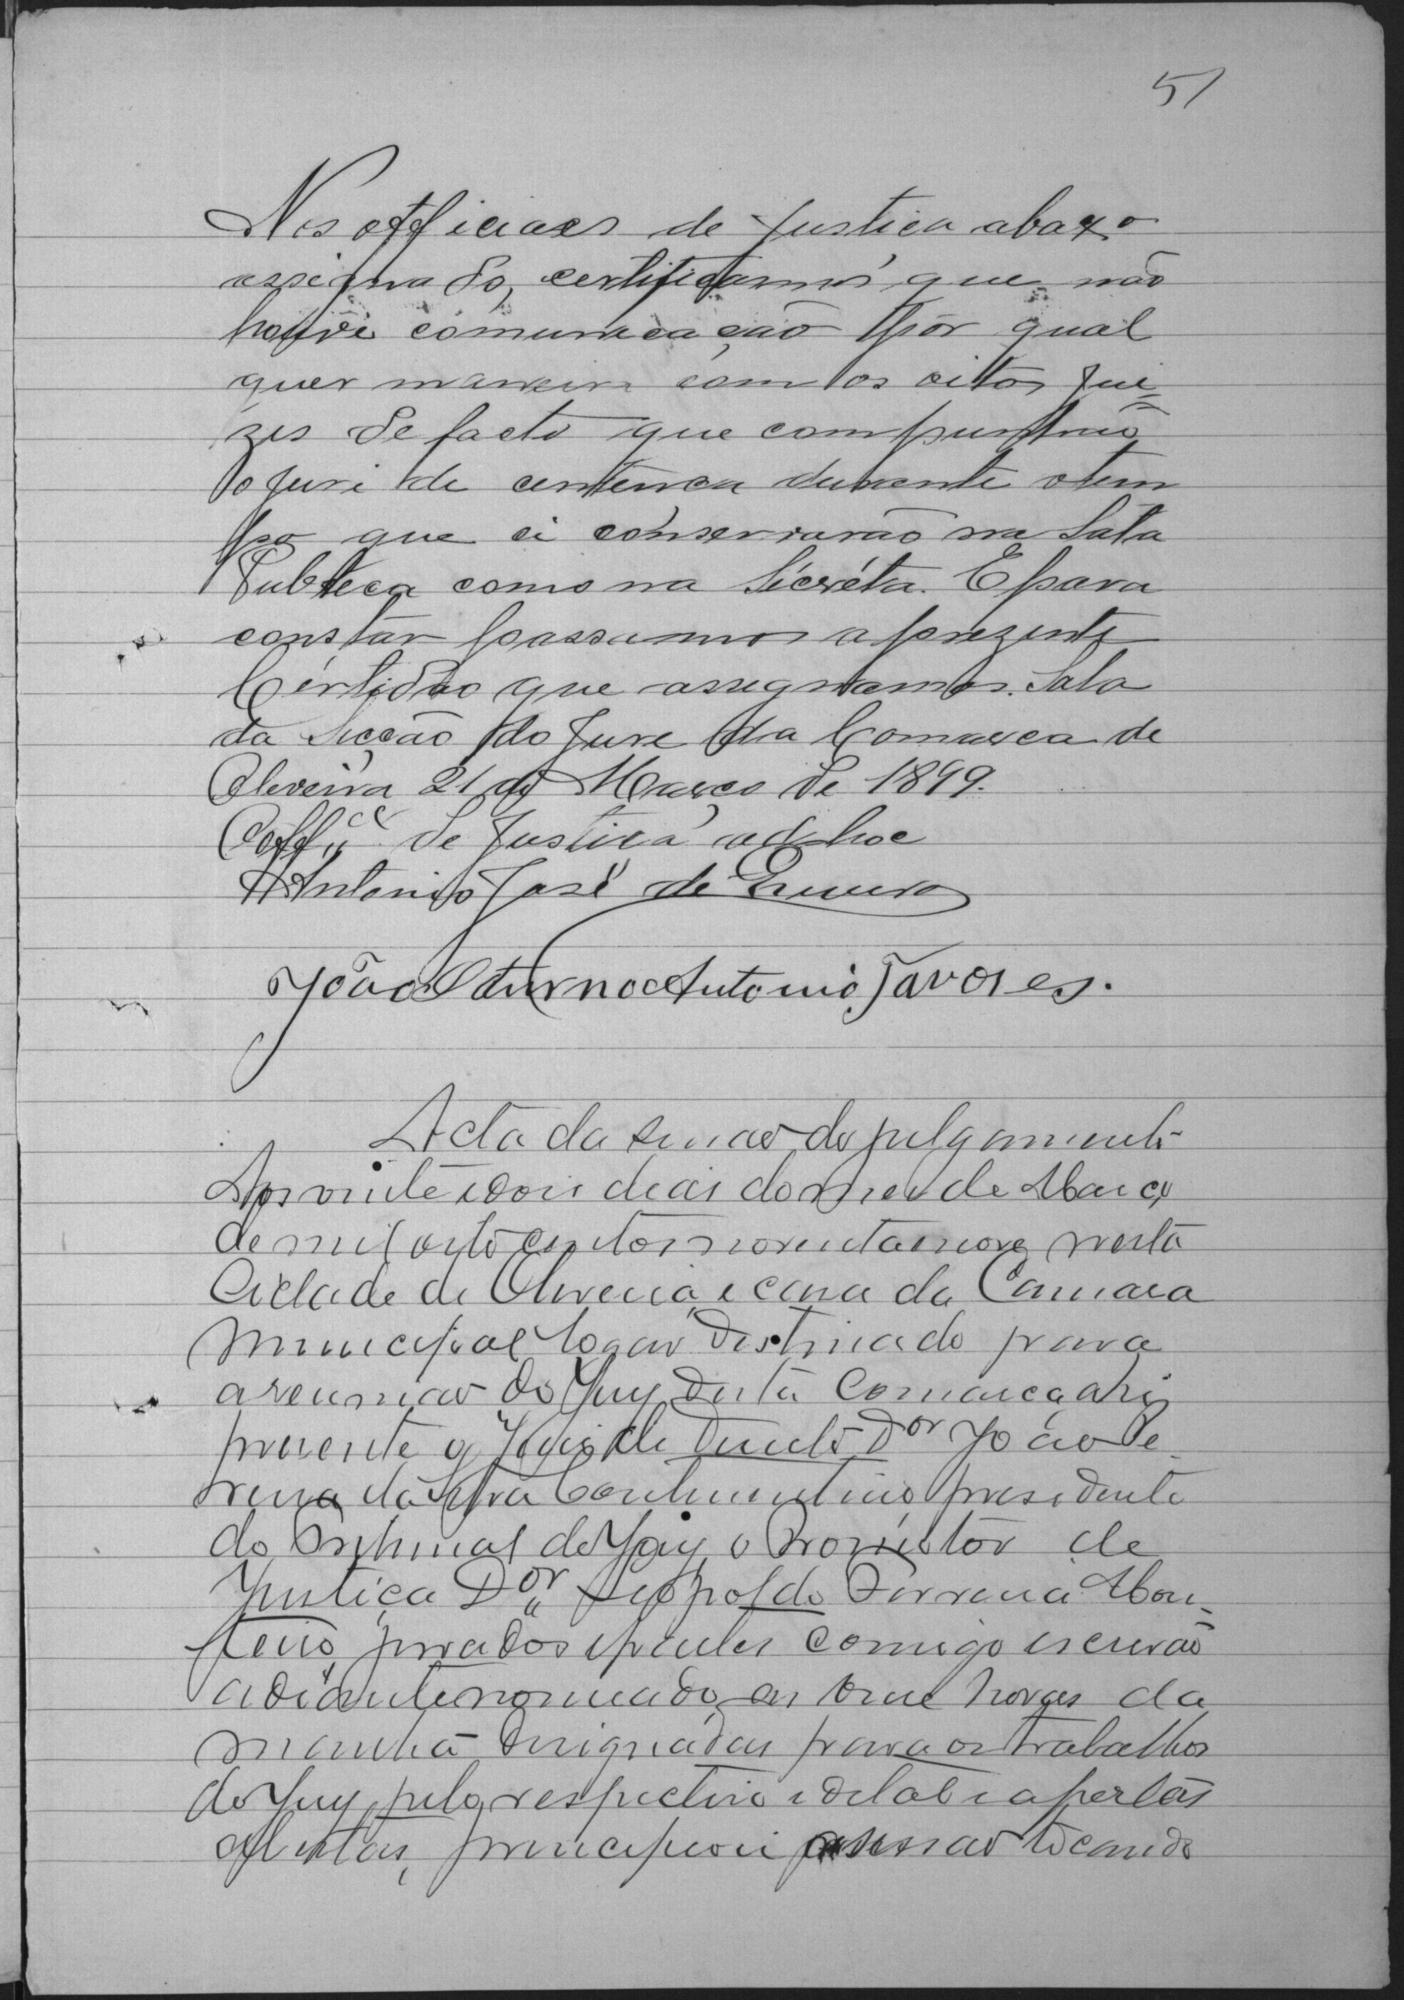 51
Nos officiaes de Justica abaxo
assignado, certificamos que não
houve comunicação por qual
quer maneira com os oitos jui=
zes de facto que compunhão
o juri de centenca durante o tem
po que ci conservarão na Sala
Publica como na Sicréta. E para
constar passamos a prezente
Certidão que assignamos. Sala
da Secção do Jure da Comarca de
Oliveira 21 de Março de 1899.
Off.es de Justica ad hoc
Antonio José de
João Saturno Antonio Tavores.
Acta da sessao do julgamento
Aos vinte e dois dias do mez de Março
de mil oito centos noventa e nove nesta
Cidade de Oliveira, e casa da Camara
Municipal logar destinado para
a reuniao do Jury desta Comarca ahi
presente o Juiz de Direito Dor João Pe
reira da Silva Continentino presidente
do Tribunal do Jury, o Promotor de
Justiça Dor Leopoldo Ferreira Mon=
teiro, jurados e partes comigo escrivão
adiante nomeado, as onze horas da
manhã designadas para os trabalhos
do Jury, pelo respectivo edital e a portas
abertas, principiou a sessao tocando